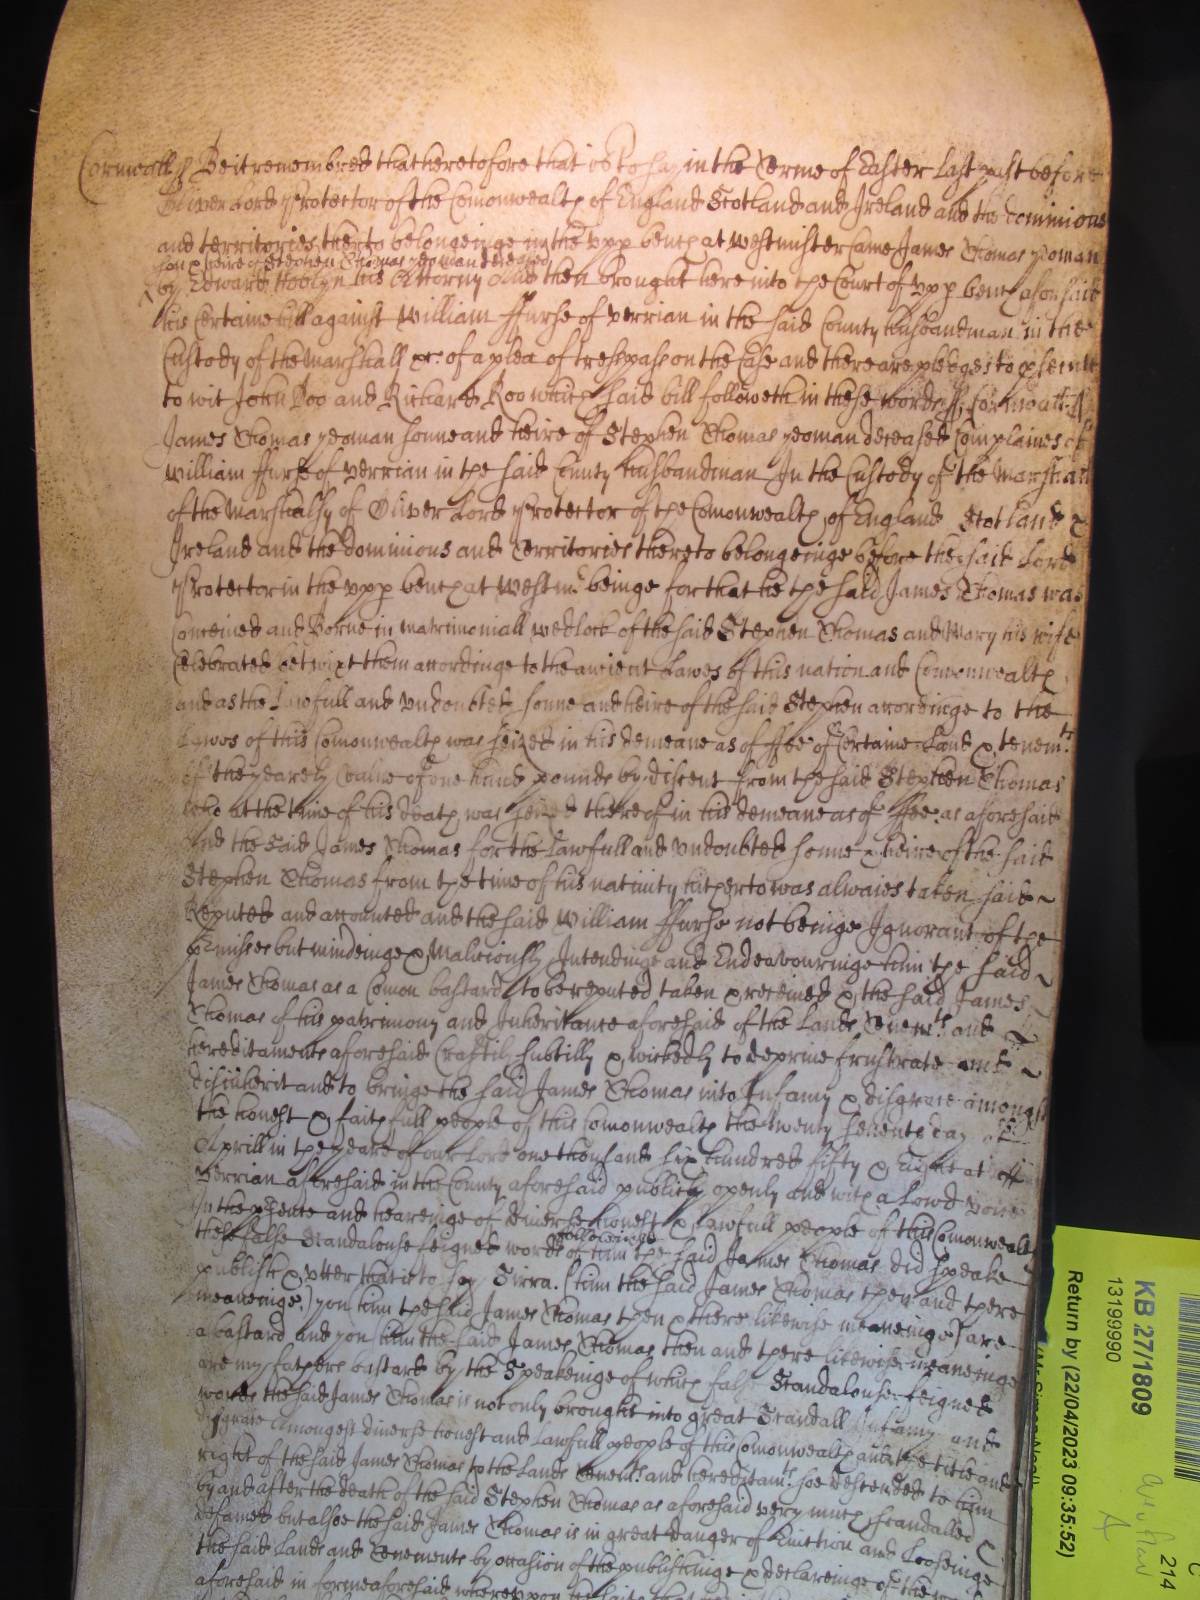 Cornwall ss Be it remembred that heretofore that is to say in the Terme of Easter last past before
Oliver Lord Protector of the Comonwealth of England Scotland and Ireland and the dominions
and territories therto belongeinge in the upp bench at Westminster Came James Thomas yeoman
son & heire of Stephen Thomas yeoman deceased
by Edward Hoblyn his Attorny And then brought here into the Court of upp bench aforesaid
his certaine bill against William ffurse of verrian in the said County husbandman in the
Custody of the Marshall &c. of a plea of trespasse on the Case and there are pledges to psecute
to wit John Doo and Richard Roo which said bill followeth in these words ss
James Thomas yeoman sonne and heire of Stephen Thomas yeoman deceased Complaines of
William ffurse of verrian in the said County husbandman In the Custody of the Marshall
of the Marshalsy of Oliver Lord Protector of the Comonwealth of England Scotland &
Ireland and the dominions and Territories thereto belongeinge before the said Lord
Protector in the upp bench at Westmr. beinge for that he the said James Thomas was
Conceived and Borne in Matrimoniall wedlock of the said Stephen Thomas and Mary his wife
Celebrated betwixt them accordinge to the ancient Lawes of this nation and Comonwealth
and as the Lawfull and undoubted sonne and heire of the said Stephen accordinge to the
Lawes of this Comonwealth was seized in his demeane as of ffee of Certaine Land & tenemts
of the yearely value of one hund pounds by discent from the said Stephen Thomas
who at the time of his death was seized thereof in his demeane as of ffee as aforesaid
And the said James Thomas for the Lawfull and undoubted sonne & heire of the said
Stephen Thomas from the time of his nativity hitherto was alwaies taken said
Reputed and accounted and the said William ffurse not beinge Ignorant of the
pmisses but mindeinge & Maliciously Intendinge and Endeavouringe him the said
James Thomas as a Comon bastard to be reputed taken & received & the said James
Thomas of his patrimony and Inheritance aforesaid of the Lands Tenemts and
hereditaments aforesaid Craftily subtilly & wickedly to deprive frustrate and
disinherit and to bringe the said James Thomas into Infamy & disgrace amongst
the honest & faithfull people of this Comonwealth the twenty seventh day of
Aprill in the yeare of our Lord one thousand six hundred fifty & Eight at
verrian aforesaid in the County aforesaid publickly openly and with a Lowd voice
In the psence and heareinge of diverse honest & Lawfull people of this Comonwealth
these false Scandalouse feigned words followeinge of him the said James Thomas did speake
publish & utter that is to say Sirra (him the said James Thomas then and there
meaneinge) you (him the said James Thomas then & there likewise meaneinge) are
a bastard and you (him the said James Thomas then and there likewise meaneinge
are my fathers bastard by the Speakeinge of which false Scandalouse feigned
words the said James Thomas is not only brought into great Scandall Infamy and
disgrace Amongest diverse honest and Lawfull people of this Comonwealth and the title and
right of the said James Thomas to the Lands Tenemts and hereditamts soe descended to him
by and after the death of the said Stephen Thomas as aforesaid very much scandalled
defamed but alsoe the said James Thomas is in great danger of Eviction and Looseinge
the said Lands and Tenements by occasion of the publishinge & declareinge of the
aforesaid in forme aforesaid whereupon he saith that
KB 27/1809
13199990
Return by (22/04/2023 09:35:52)
214
A